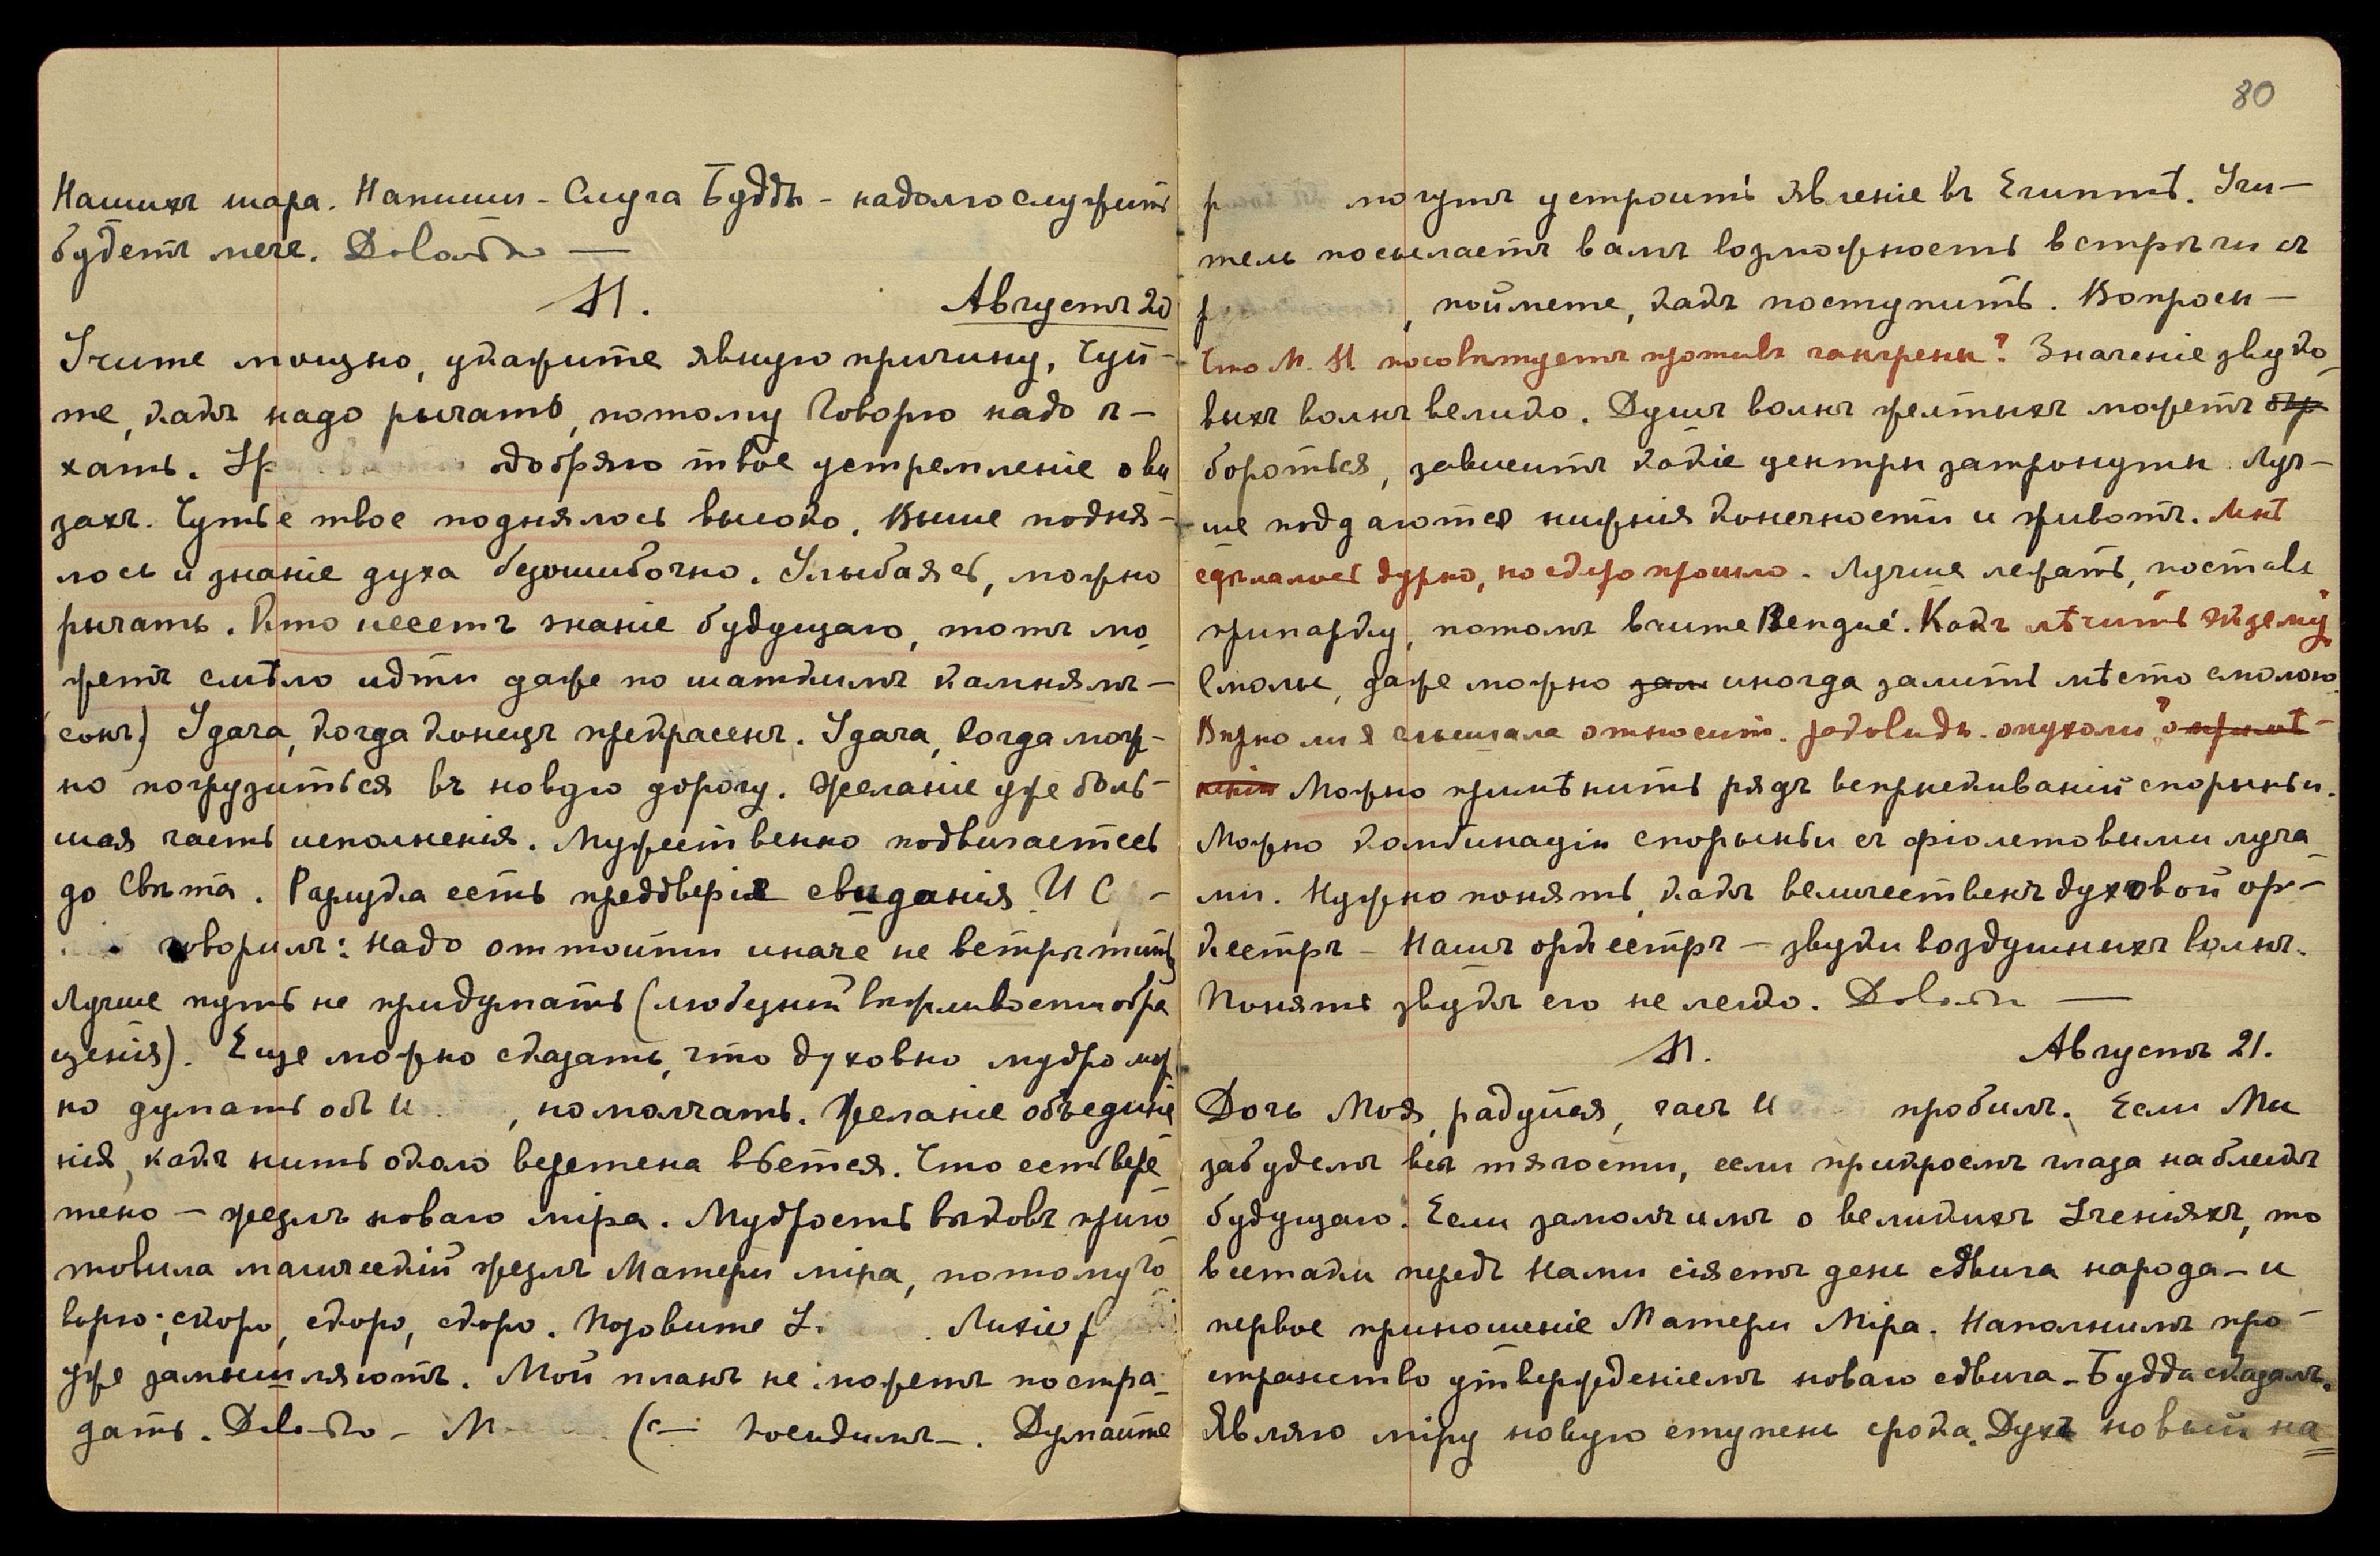 Нашихъ шара. Напиши - Слуга Буддѣ - надолго служить
будетъ мече. Dolorto —
М. Августъ 20
Учите мощно, укажите явную причину, Чуй-
те, какъ надо рычать, потому Говорю надо
хать. Ур одобряю твое устремленіе о ви
захъ. Чутье твое поднялось высоко. Выше подня-
лось и знаніе духа безошибочно. Улыбаясь, можно
рычать. Кто несетъ знаніе будущаго, тотъ мо
жетъ смѣло идти даже по шаткимъ камнямъ —
(сонъ) Удача, когда конецъ прекрасенъ. Удача, когда мож-
но погрузиться въ новую дорогу. Желаніе уже боль-
шая часть исполненія. Мужественно подвигаетесь
до Свѣта. Разлука есть преддверіе свиданія И С -
говорилъ: надо оттойти иначе не встрѣтить
Лучше путь не придумать (любезный вѣжливости обра
щенія). Еще можно сказать, что духовно мудро мож
но думать объ И , но молчать. Желаніе объедине
нія, какъ нить около веретена вьется. Что есть вере
тено — жезлъ новаго міра. Мудрость вѣковъ приго
товила магическій жезлъ Матери міра, потому го
ворю: скоро, скоро, скоро. Позовите У. Лихіе р
уже замышляютъ. Мой планъ не можетъ постра-
дать. Dolorto - М (с— посидимъ —. Думайте
80
р могутъ устроить явленіе въ Египтѣ. Учи-
тель посылаетъ вамъ возможность встрѣчи съ
р , поймете, какъ поступить. Вопросы —
Что М. М. посовѣтуетъ противъ гангрены? Значеніе звуко
выхъ волнъ велико. Душъ волнъ желтыхъ можетъ
бороться, зависитъ какіе центры затронуты. Луч-
ше поддаются нижнія конечности и животъ. Мнѣ
сдѣлалось дурно, но скоро прошло. Лучше лежать, поставь
припарку, потомъ вчите Bengué. Какъ лѣчить экзему
Смолы, даже можно зали иногда залить мѣсто смолою.
Вѣрно ли я слышала относит. радовидн. опухоли? о примѣ-
неніи Можно примѣнить рядъ вспрыскиваній спорыньи.
Можно комбинаціи спорыньи съ фіолетовыми луча
ми. Нужно понять, какъ величественъ духовой ор-
кестръ — Нашъ оркестръ — звуки воздушныхъ волнъ.
Понять звукъ его не легко. Dolorto —
М. Августъ 21.
Дочь Моя, радуйся, часъ И пробилъ. Если Мы
забудемъ всѣ тягости, если прикроемъ глаза на блескъ
будущаго. Если замолчимъ о великихъ Ученіяхъ, то
всетаки передъ Нами сіяетъ день сдвига народа — и
первое приношеніе Матери Міра. Наполнимъ про-
странство утвержденіемъ новаго сдвига — Будда сказалъ.
Являю міру новую ступень срока. Духъ новый на